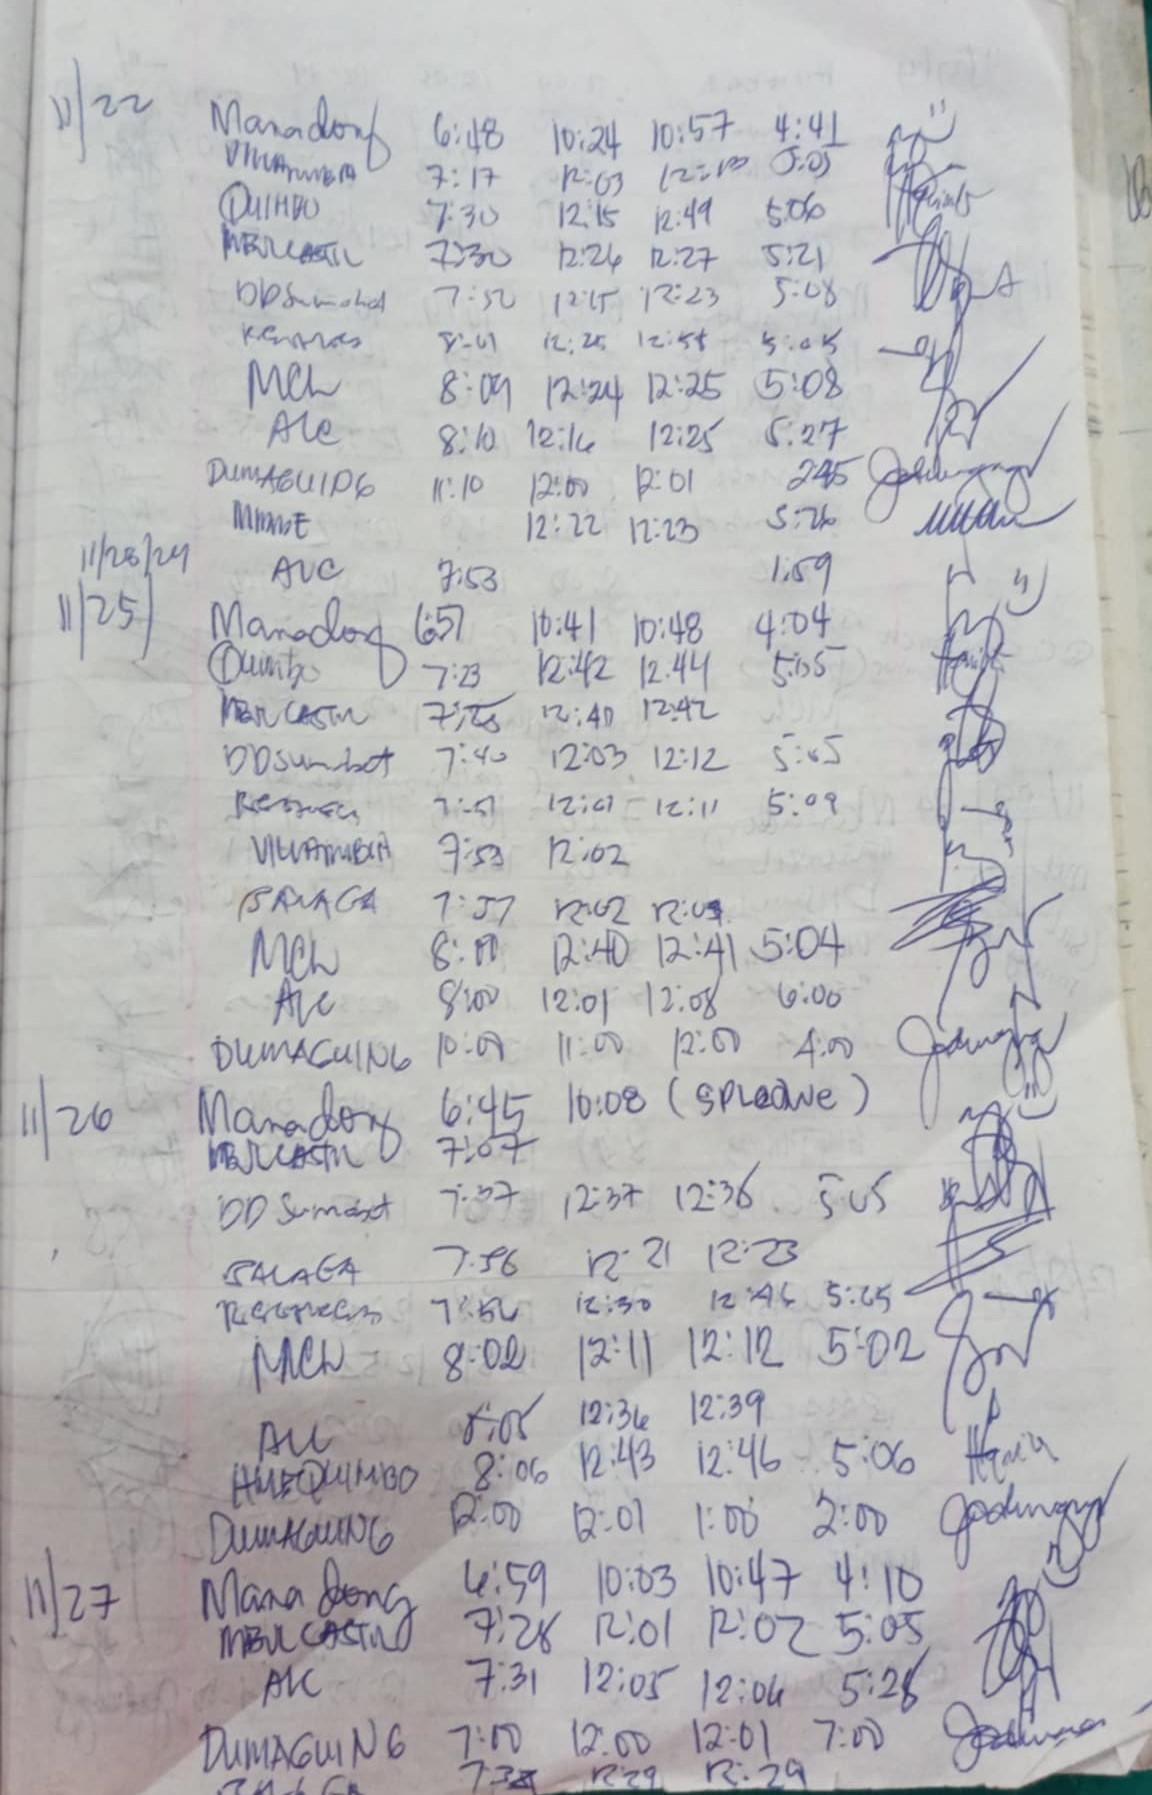 11/22 Manadong 6:48 10:24 10:57 4:41
7:17 12:03 5:05
QUIMBO 7:30 12:15 12:49 5:06
MBRCASTR 7:30 12:26 12:27 5:21
DDSumabat 7:50 12:15 12:23 5:08
12:25 12:58 5:05
MCL 8:09 12:24 12:25 5:08
ALC 8:10 12:16 12:25 5:27
DUMAGUING 11:10 12:00 12:01 2:45
12:22 12:23 5:26
ALC 7:53 1:59
11/25 Manadong 6:57 10:41 10:48 4:04
Quimbo 7:23 12:42 12:44 5:05
MBRCASTR 12:40 12:42
DDSumabat 7:40 12:03 12:12 5:05
12:11 5:09
7:53 12:02
BALAGA 7:57 12:02
MCL 8:00 12:40 12:41 5:04
ALC 8:00 12:01 12:08 6:00
DUMAGUING 10:00 11:00 12:00 4:00
11/26 Manadong 6:45 10:08
MBRCASTR 7:07
DD Sumabat 7:37 12:37 12:38 5:05
BALAGA 7:56 12:21 12:23
12:30 12:46
MCL 8:02 12:11 12:12 5:02
ALC 8:05 12:36 12:39
QUIMBO 8:06 12:43 12:46 5:06
DUMAGUING 12:00 12:01 1:00 2:00
11/27 Manadong 6:59 10:03 10:47 4:10
MBRCASTR 7:28 12:01 12:02 5:05
ALC 7:31 12:05 12:06 5:28
DUMAGUING 7:00 12:00 12:01 7:00
12:29 12:29